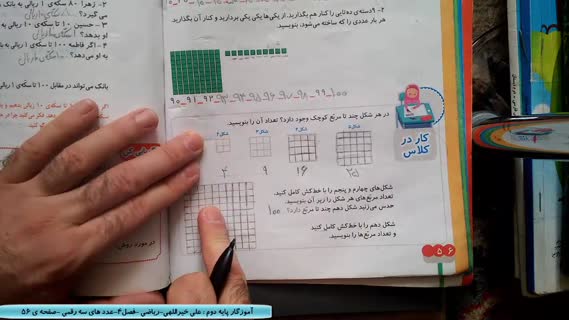 ۲- ۹دسته‌ی ده‌تایی را کنار هم بگذارید. از یکی‌ها یکی یکی بردارید و کنار آن بگذارید.
هر بار عددی را که ساخته می‌شود، بنویسید.
۹۰ ۹۱ ۹۲ ۹۳ ۹۴ ۹۵ ۹۶ ۹۷ ۹۸ ۹۹ ۱۰۰
۲- زهرا ۸۰ سکه‌ی ۱ ریالی به بانک
می گیرد؟
۳- حسین ۱۰ سکه‌ی ۱۰ ریالی به
او بدهید؟
۴- اگر فاطمه ۱۰۰ تا سکه‌ی ۱ ریالی
به او می‌دهد؟
بانک می‌تواند در مقابل ۱۰۰ تا سکه‌ی ۱ ریالی
کار در
کلاس
در هر شکل چند تا مربّع کوچک وجود دارد؟ تعداد آن را بنویسید.
شکل۲ شکل۳ شکل۴ شکل۵
۴ ۹ ۱۶ ۲۵
شکل‌های چهارم و پنجم را با خط‌کش کامل کنید.
تعداد مربّع‌های هر شکل را زیر آن بنویسید.
حدس می‌زنید شکل دهم چند تا مربّع دارد؟ ۱۰۰
شکل دهم را با خط‌کش کامل کنید
و تعداد مربّع‌ها را بنویسید.
۵۶
در مورد روش
آموزگار پایه دوم : علی خیراللهی -ریاضی -فصل۴-عدد های سه رقمی -صفحه ی ۵۶